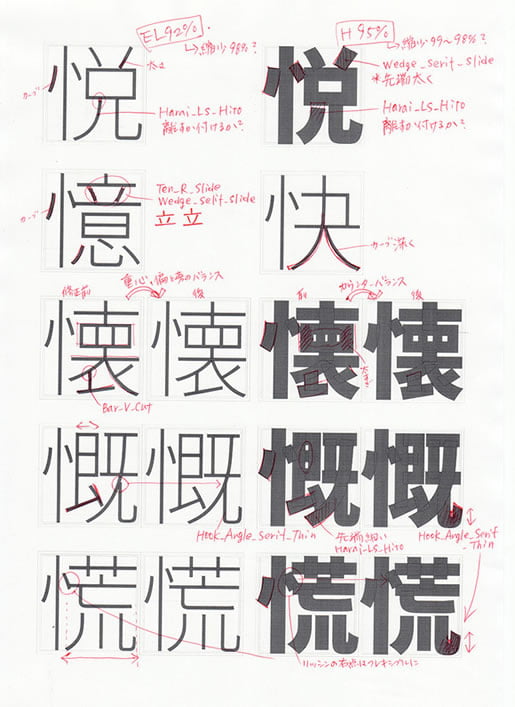 EL92%
↳縮小 98%?
H 95%
↳縮小 99〜98%?
悦
太く
カーブ
Harai_Ls_Hito
離れ付けるか?
悦
Wedge_Serif_Slide
*先端太く
Harai_Ls_Hito
離れ付けるか?
憶
カーブ
Ten_R_Slide
Wedge_Serif_Slide
立 立
快
カーブ深く
重心、偏と旁のバランス
修正前
後
カウンターバランス
前
後
懐
懐
懐
懐
Bar_V_Cut
慨
慨
慨
慨
Hook_Angle_Serif_Thin
先端細い
Harai_Ls_Hito
Hook_Angle_Serif
_Thin
慌
慌
慌
慌
リッシンの右点はフレキシブルに